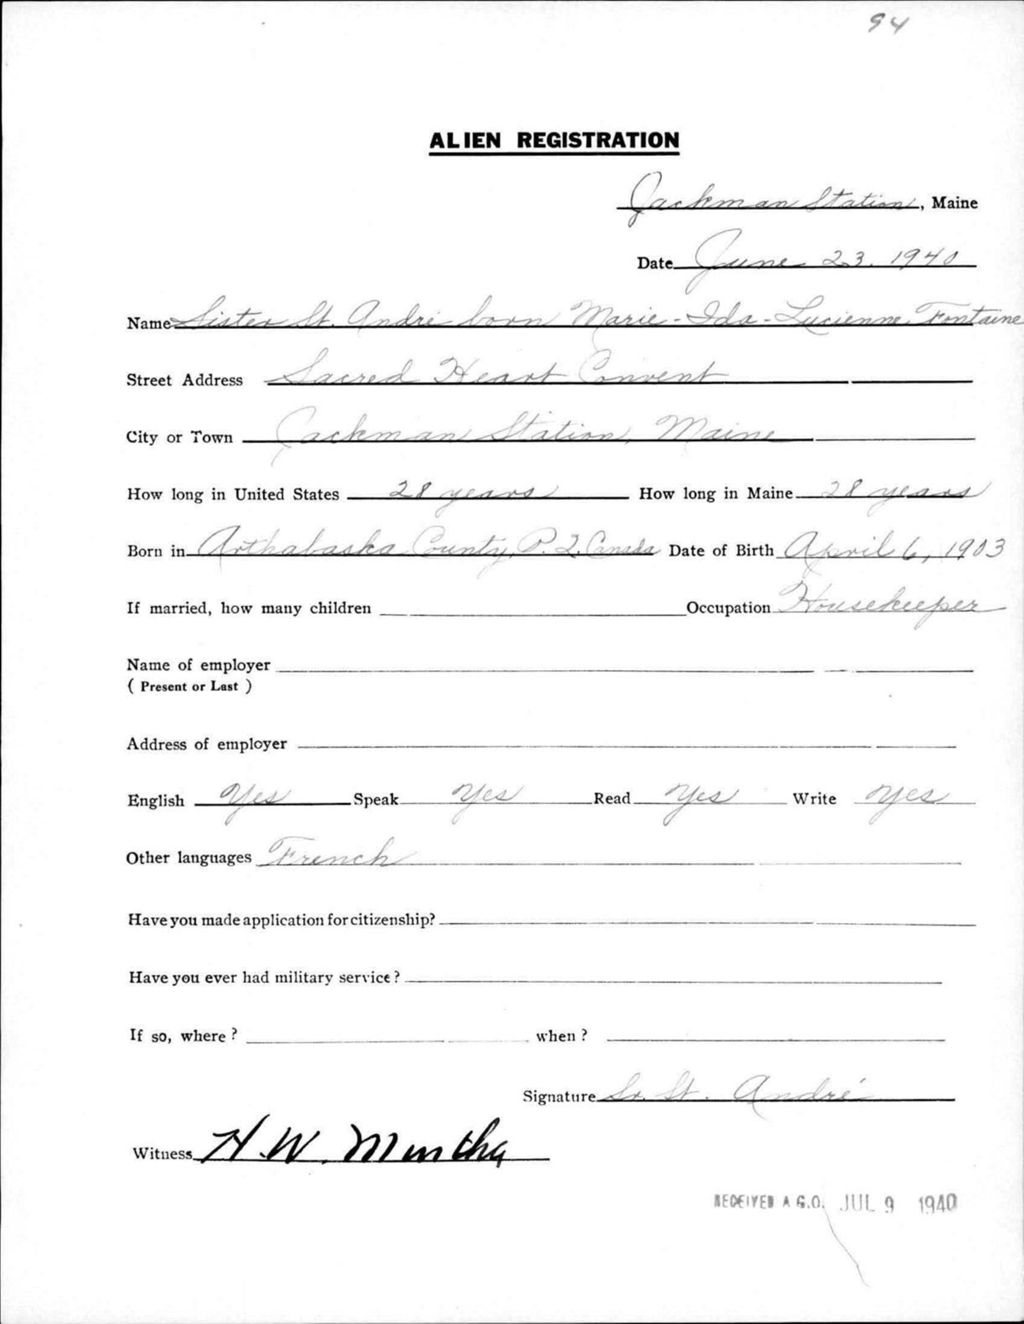 94
ALIEN REGISTRATION
Jackman Station, Maine
Date June 23, 1940
Name Sister St. André born Marie-Ida-Lucienne Fontaine
Street Address Sacred Heart Convent
City or Town Jackman Station, Maine
How long in United States 28 years How long in Maine 28 years
Born in Arthabaska County, P. Q. Canada Date of Birth April 6, 1903
If married, how many children Occupation Housekeeper
Name of employer
( Present or Last )
Address of employer
English Yes Speak Yes Read Yes Write Yes
Other languages French
Have you made application for citizenship?
Have you ever had military service ?
If so, where ? when ?
Signature Sr. St. André
Witness H. W. Murtha
RECEIVED A G.O. JUL 9 1940